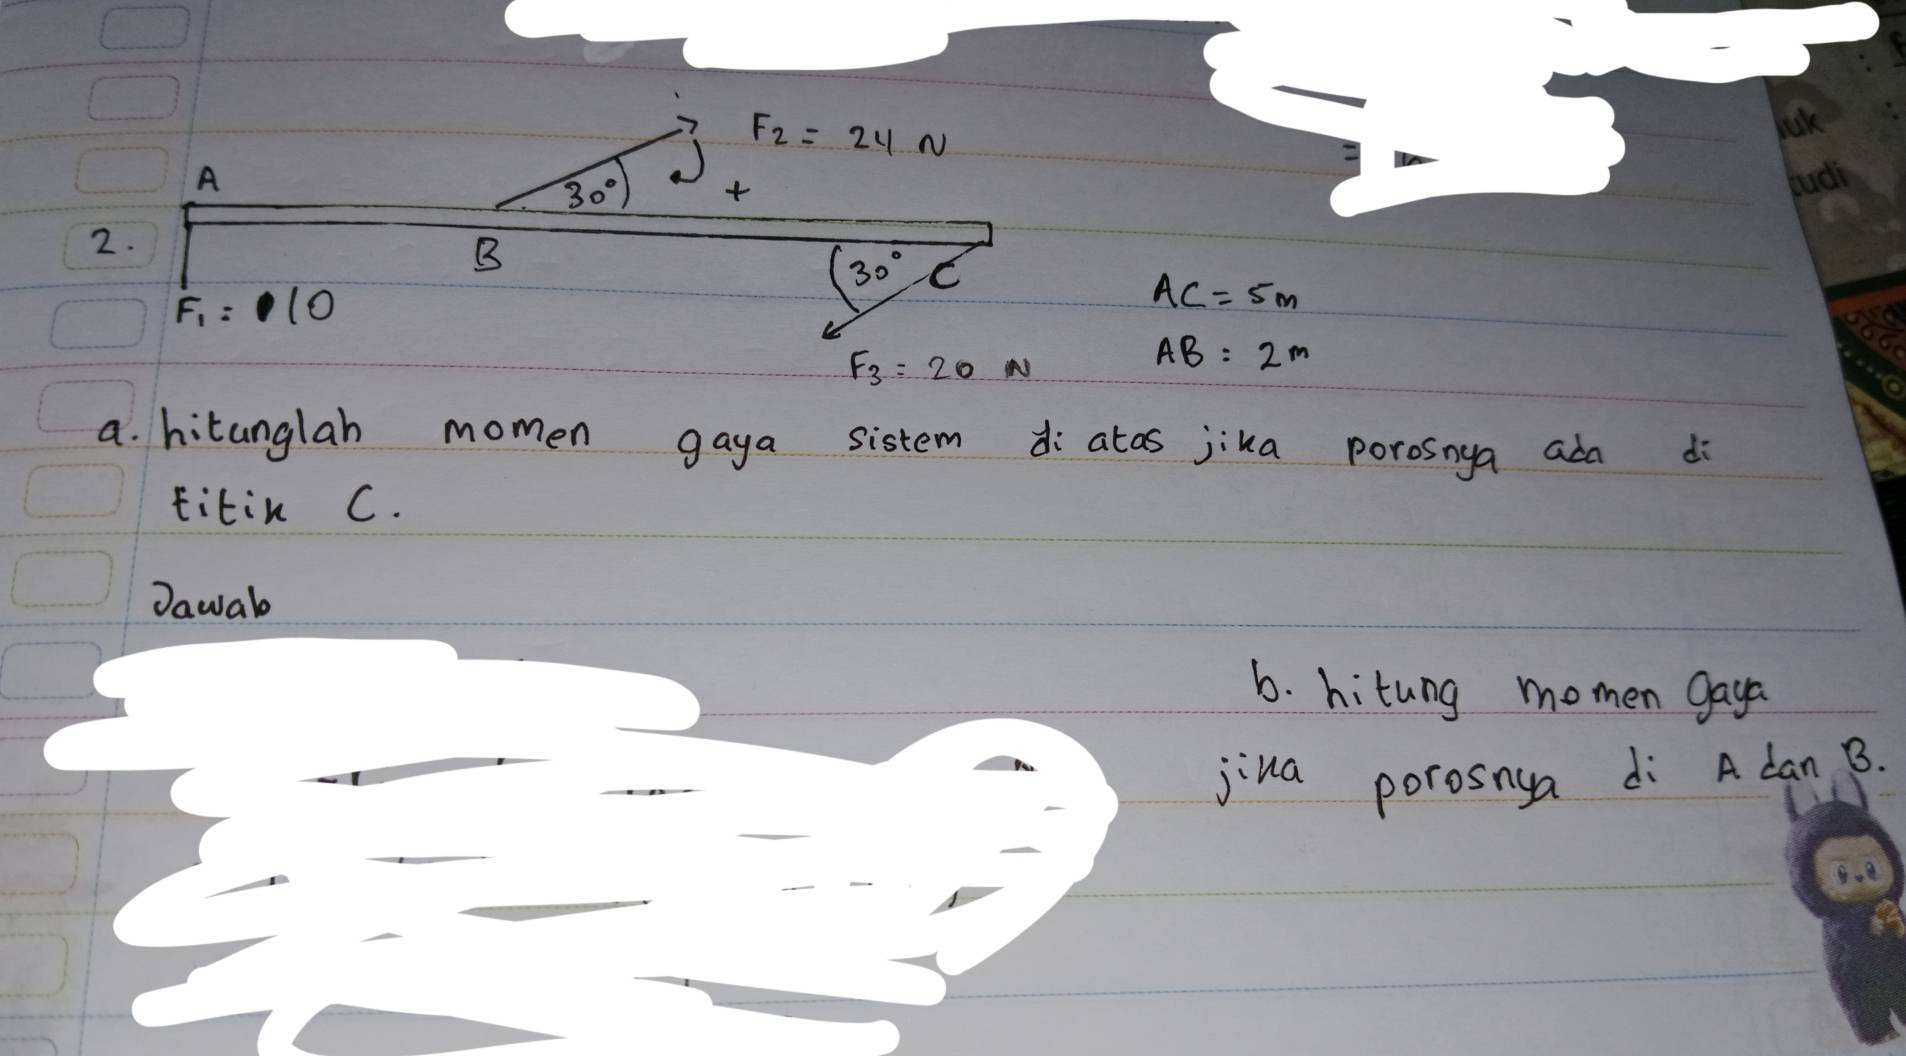 F2 = 24 N
30°
+
A
2.
B
30°
C
F1 : 10
AC = 5m
F3 = 20 N
AB : 2m
a. hitunglah momen gaya sistem di atas jika porosnya ada di
titik C.
Jawab
b. hitung momen gaya
jika porosnya di A dan B.